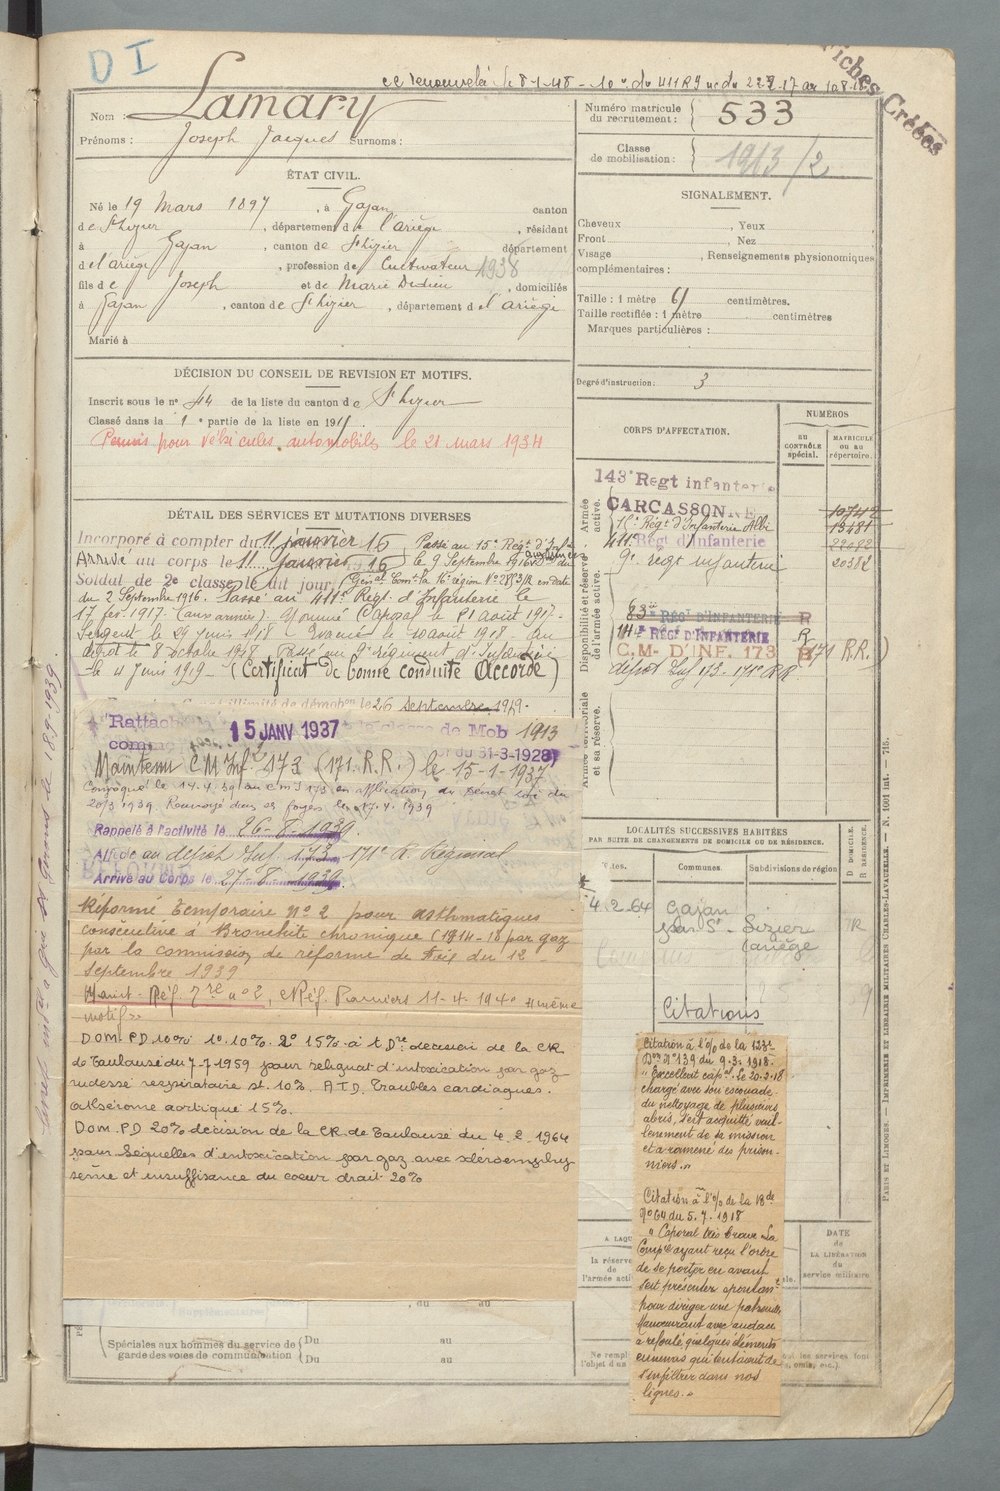 D I
Fiches Créées
Nom : Lamary
Prénoms : Joseph Jacques Surnoms :
Numéro matricule du recrutement : 533
Classe de mobilisation : 1913/2
ÉTAT CIVIL.
Né le 19 Mars 1897, à Gajan canton
de St Lizier, département de l'Ariège, résidant
à Gajan, canton de St Lizier département
d e l'ariège, profession de Cultivateur 1938
fils de Joseph et de Marie Dedieu, domiciliés
à Gajan, canton de St Lizier, département d e l'ariège
Marié à
SIGNALEMENT.
Cheveux , Yeux
Front , Nez
Visage , Renseignements physionomiques
complémentaires :
Taille : 1 mètre 61 centimètres.
Taille rectifiée : 1 mètre centimètres
Marques particulières :
Degré d'instruction : 3
DÉCISION DU CONSEIL DE REVISION ET MOTIFS.
Inscrit sous le n° 44 de la liste du canton de St Lizier
Classé dans la 1e partie de la liste en 191
Permis pour véhicules automobiles le 21 mars 1934
DÉTAIL DES SERVICES ET MUTATIONS DIVERSES
Incorporé à compter du 11 janvier 16 Passé au 15e Régt d'Infie
Arrivé au corps le 11 janvier 1916 le 9 Septembre 1916
Soldat de 2e classe le dit jour (Génal Comt la 16e région N° 2853/R en date
du 2 Septembre 1916. Passé au 411e Régt. d'Infanterie le
17 fév. 1917. (aux armées). Nommé Caporal le 21 août 1917.
Sergent le 29 Juin 1918 - Evacué le 10 août 1918 - Au
dépôt le 8 octobre 1918 Passé au 9e régiment d'Infanterie
le 4 Juin 1919 - (Certificat de bonne conduite Accordé)
le 26 septembre 1919.
15 JANV 1937
de Mob 1913
du 31-3-1928
Maintenu C M Inf. 173 (171. R.R.) le 15-1-1937
Convoqué le 14.4.39 au C M I 173 en application du décret loi du
20/3 1939. Renvoyé dans ses foyers le 17.4.1939
Rappelé à l'activité le 26-8-1939.
Affecté au dépôt Inf 173, 171e R. Régional
Arrivé au Corps le 27-8-1939.
Réformé temporaire N° 2 pour asthmatiques
consécutive à Bronchite chronique (1914-18 par gaz
par la commission de réforme de du 12
Septembre 1939
Maint. Réf. Tre n° 2, CRéf. Pamiers 11-4-1940 même
motif
D O M. P D 10% 1° 10% 2° 15% à t. Dre décision de la CR
de Toulouse du 7-7-1959 pour reliquat d'intoxication par gaz
rudesse respiratoire st. 10%, A T D. Troubles cardiaques.
athérome aortique 15%.
DOM. P D 20% décision de la CR. de Toulouse du 4.2.1964
pour Séquelles d'intoxication par gaz avec scléroemphy
sème et insuffisance du coeur droit 20%
Spéciales aux hommes du service de garde des voies de communication
Du au
Du au
CORPS D'AFFECTATION.
NUMÉROS
AU CONTRÔLE spécial.
MATRICULE ou au répertoire.
Armée active.
143e Regt infanterie
CARCASSONNE 10742
15e Régt d'Infanterie Albi 13481
411e Régt d'Infanterie 22092
9e régt infanterie 20382
Disponibilité et réserve de l'armée active.
83e RÉGt D'INFANTERIE R
14e RÉGt D'INFANTERIE R
C.M- D'INF. 173 R (171 R.R.)
dépôt Inf 173- 171e R.R.
Armée territoriale et sa réserve.
LOCALITÉS SUCCESSIVES HABITÉES
PAR SUITE DE CHANGEMENTS DE DOMICILE OU DE RÉSIDENCE.
Communes
Subdivisions de région
D DOMICILE.
R RÉSIDENCE.
4-2-64 Gajan
par St- Lizier R
(ariège
Citations
Citation à l'O/ de la 123e
Don N° 139 du 9.3.1918.
"Excellent capal. Le 20-2-18
chargé avec son escouade
du nettoyage de plusieurs
abris, s'est acquitté vail-
lamment de sa mission
et a ramené des prison-
niers."
Citation à l'O/ de la Bde
N° 64 du 5.7.1918
"Caporal très brave. Sa
Compie ayant reçu l'ordre
de se porter en avant
s'est présenté spontant
pour diriger une patrouille
Manoeuvrant avec audace
a refoulé quelques éléments
ennemis qui tentaient de
s'infiltrer dans nos
lignes."
DATE
de
LA LIBÉRATION
du
service militaire
PARIS ET LIMOGES. — IMPRIMERIE ET LIBRAIRIE MILITAIRES CHARLES-LAVAUZELLE. — N. 1001 int. — 715.